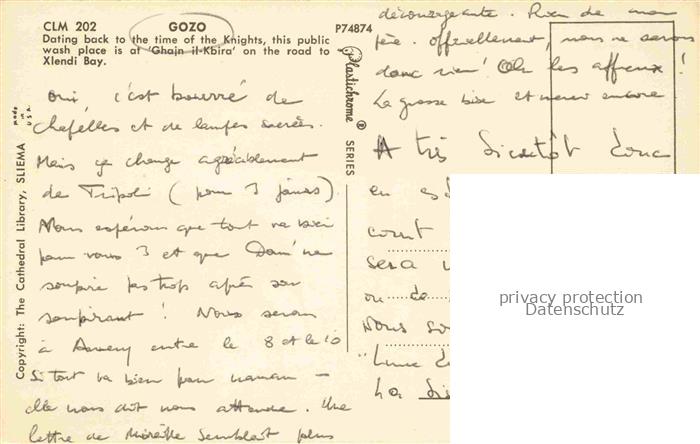 CLM 202
GOZO
P74874
Dating back to the time of the Knights, this public
wash place is at 'Ghajn il-Kbira' on the road to
Xlendi Bay.
made in U.S.A.
Copyright: The Cathedral Library, SLIEMA
Plastichrome ® SERIES
oui, c'est bourré de
chapelles et de lampes sacrées.
Mais ça change agréablement
de Tripoli (pour 3 jours)
Nous espérons que tout va bien
pour vous 3 et que Dom' ne
soupire pas trop après son
soupirant ! Nous serons
à entre le 8 et le 10
Si tout va bien pour maman -
elle nous dit nous attendre. Une
lettre de Mireille semblait plus
décourageante. Rien de mon
père. officiellement, nous ne savons
donc rien ! Oh les affreux !
La grosse bise et merci encore
A très bientôt donc
en
court
sera
ou de
Nous
"Lune
La
privacy protection
Datenschutz